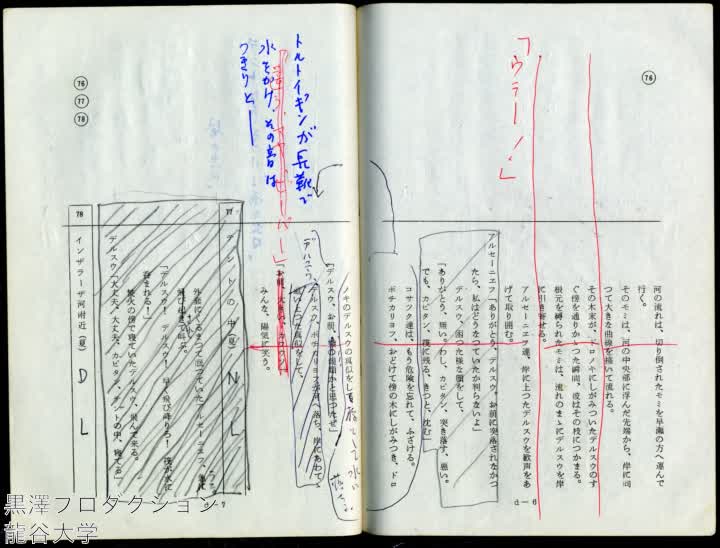 76
河の流れは、切り倒されたモミを早瀬の方へ運んで
行く。
そのモミは、河の中央部に浮んだ先端から、岸に向
つて大きな曲線を描いて流れる。
その木末が、ドロノキにしがみついたデルスウのす
ぐ傍を通りかゝつた瞬間、彼はその枝につかまる。
根元を縛られたモミは、流れのまゝにデルスウを岸
に引き寄せる。
アルセーニエフ達、岸に上つたデルスウを歓声をあ
げて取り囲む。
「ウラー!」
アルセーニエフ「ありがとう、デルスウ。お前に突落されなかつ
たら、私はどうなつていたか判らないよ」
デルスウ、困つた様な顔をして、
「ありがとう、無い。わし、カピタン、突き落す、悪い。
でも、カピタン、筏に残る、きつと、沈む」
コサツク達は、もう危険を忘れて、ふざける。
ボチカリヨフ、おどけて傍の木にしがみつき、ドロ
d—6
76
77
78
ノキのデルスウの真似をし
「デルスウ、お前、
デルスウ、ボチカリヨフが河へ落ち、岸にあわてゝ
這い上つた真似をして、
「お前、大きな
みんな、陽気に笑う。
トルトイギンが長靴で
水をかけ、その音は
77 テントの中(夜) N L
外套にくるまつて眠つていたアルセーニエフ、急に
飛び起きて叫ぶ。
「デルスウ! デルスウ! 早く飛び降りろ! 筏が水に
呑まれる!」
焚火の傍で寝ていたデルスウ、飛んで来る。
デルスウ「大丈夫、大丈夫、カピタン、テントの中、寝てる」
78 インザラーザ河附近(昼) D L
d—7
黒澤プロダクション
龍谷大学